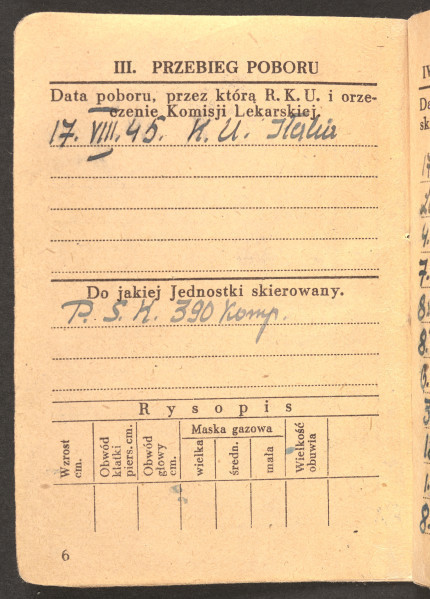 III. PRZEBIEG POBORU
Data poboru, przez którą R. K. U. i orze-
czenie Komisji Lekarskiej.
17. VIII. 45. K. U. Italia
Do jakiej Jednostki skierowany.
P. S. K. 390 Komp.
Rysopis
Wzrost
cm.
Obwód
klatki
piers. cm.
Obwód
głowy
cm.
Maska gazowa
wielka
średn.
mała
Wielkość
obuwia
6